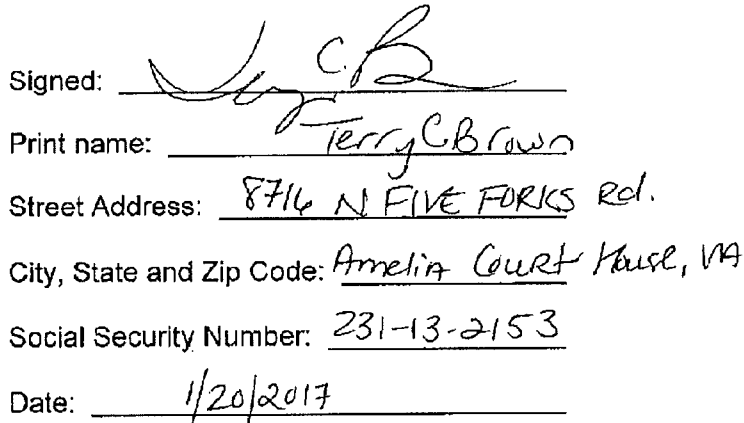 Signed: C. B
Print name: Terry C Brown
Street Address: 8716 N FIVE FORKS Rd.
City, State and Zip Code: Amelia Court House, VA
Social Security Number: 231-13-2153
Date: 1/20/2017